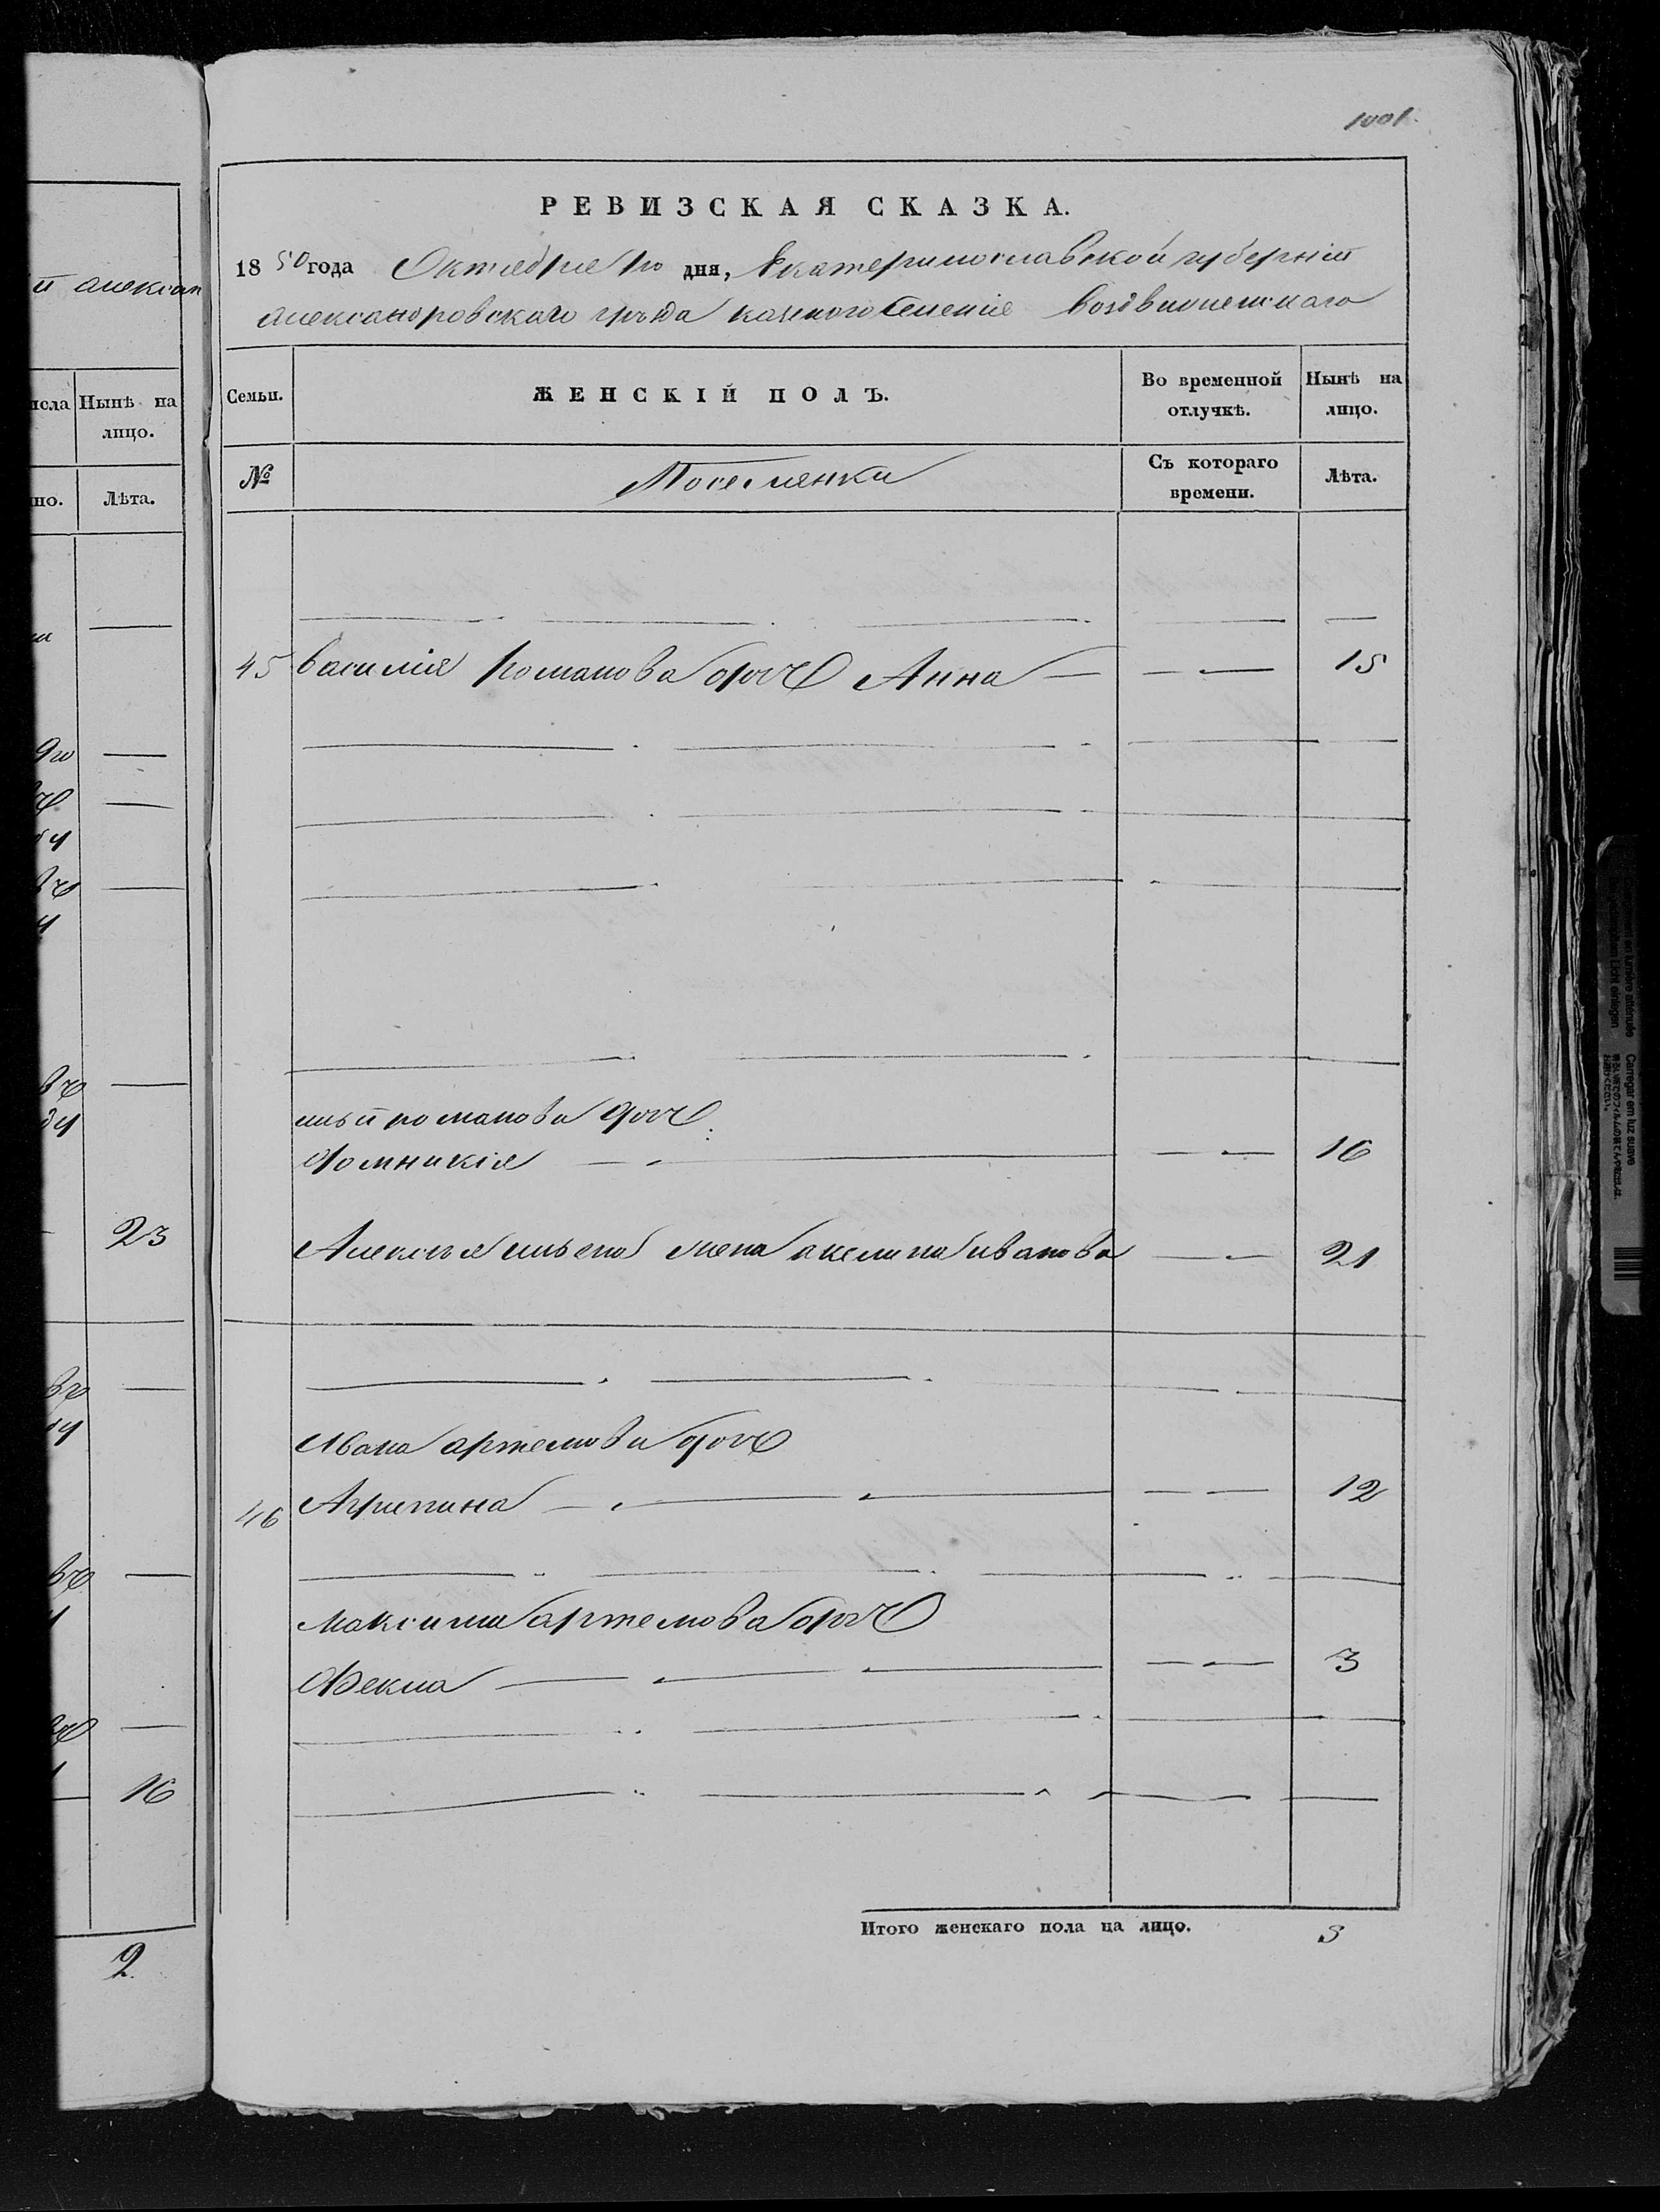 1001.
РЕВИЗСКАЯ СКАЗКА.
1850 года Октября дня, Екатеринославской губерніи
й алексан
александровскаго уѣзда казенного селенія Воздвиженскаго
исла Нынѣ на лицо.
но. Лѣта.
Семьи. ЖЕНСКІЙ ПОЛЪ. Во временной отлучкѣ. Нынѣ на лицо.
№ Поселянки Съ котораго времени. Лѣта.
45 василия романова дочь Анна — — — 15
ильи романова дочь
Домникія — — — 16
23
Алексѣя ильена жена акелина иванова — — 21
Ивана артемова дочь
46 Агрипина — — — 12
максима артемова дочь
Фекла — — — 3
16
Итого женскаго пола на лицо. 5
2.